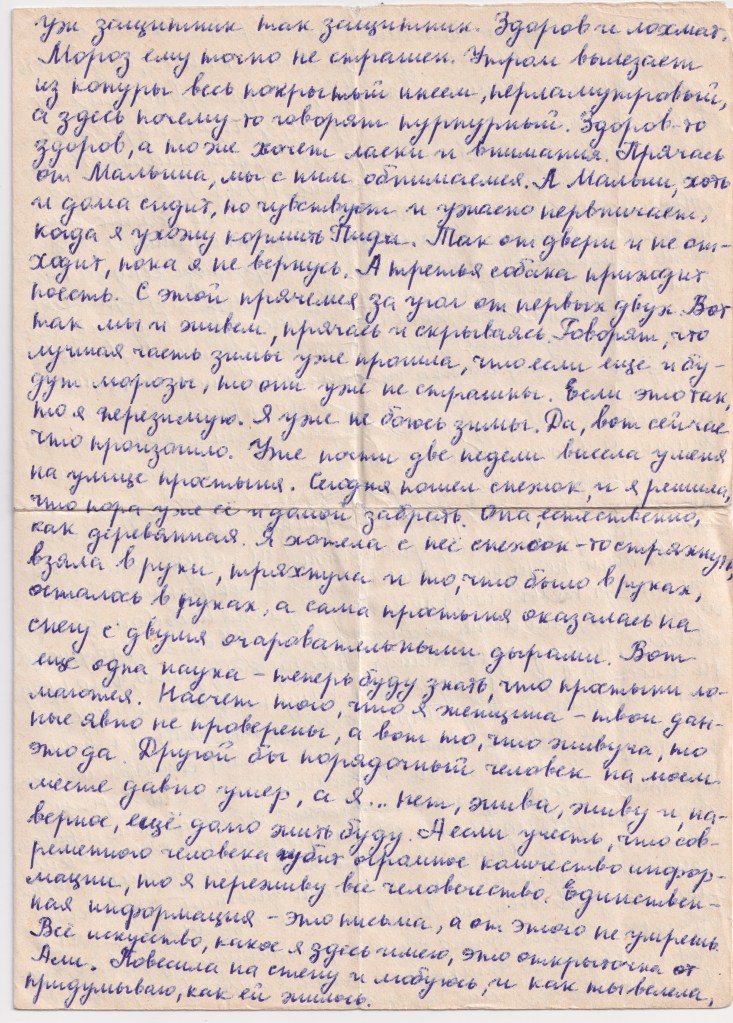 уж защитник так защитник. Здоров и лохмат.
Мороз ему точно не страшен. Утром вылезает
из конуры весь покрытый инеем, перламутровый,
а здесь почему-то говорят пурпурный. Здоров-то
здоров, а тоже хочет ласки и внимания. Прячась
от Малыша, мы с ним обнимаемся. А Малыш, хоть
и дома сидит, но чувствует и ужасно нервничает,
когда я ухожу кормить. Так от двери и не от-
ходит, пока я не вернусь. А третья собака приходит
поесть. С этой прячемся за угол от первых двух. Вот
так мы и живем, прячась и скрываясь. Говорят, что
лучшая часть зимы уже прошла, что если еще и бу-
дут морозы, то они уже не страшны. Если это так,
то я перезимую. Я уже не боюсь зимы. Да, вот сейчас
что произошло. Уже почти две недели висела у меня
на улице простыня. Сегодня пошел снежок, и я решила,
что пора уже её и домой забрать. Она, естественно,
как деревянная. Я хотела с неё снежок-то стряхнуть,
взяла в руки, тряхнула и то, что было в руках,
осталось в руках, а сама простыня оказалась на
снегу с двумя очаровательными дырами. Вот
еще одна наука - теперь буду знать, что простыни ло-
маются. Насчет того, что я женщина - твои дан-
ные явно не проверены, а вот то, что живуча, то
это да. Другой бы порядочный человек на моем
месте давно умер, а я... нет, жива, живу и, на-
верное, ещё долго жить буду. А если учесть, что сов-
ременного человека губит огромное количество инфор-
мации, то я переживу всё человечество. Единствен-
ная информация - это письма, а от этого не умрешь.
Всё искусство, какое я здесь имею, это открыточка от
Али. Повесила на стену и любуюсь, и как ты велела,
придумываю, как ей жилось.